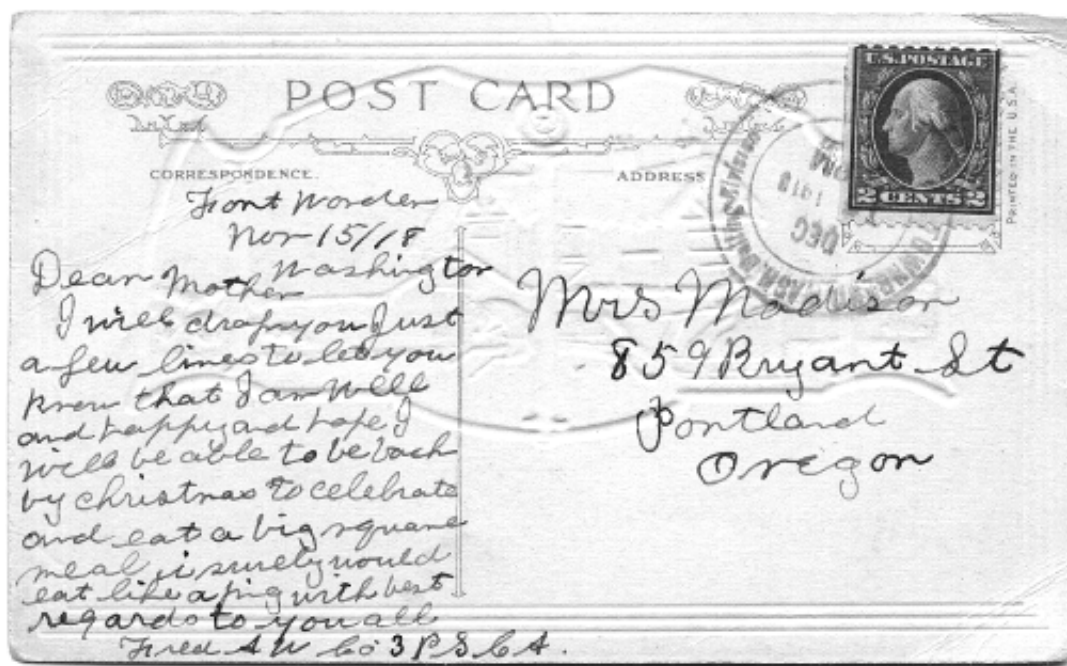 POST CARD
CORRESPONDENCE.
ADDRESS
U.S. POSTAGE
2 CENTS 2
PRINTED IN THE U.S.A.
DEC
1918
Font Worden
Nov 15/18
Washington
Dear Mother
I will drop you Just
a few lines to let you
know that I am Well
and happy and hope I
will be able to be back
by christmas to celebrate
and eat a big square
meal i surely would
eat like a pig with best
regards to you all
Fred A W Co 3 P S C A.
Mrs Madison
859 Bryant St
Portland
Oregon